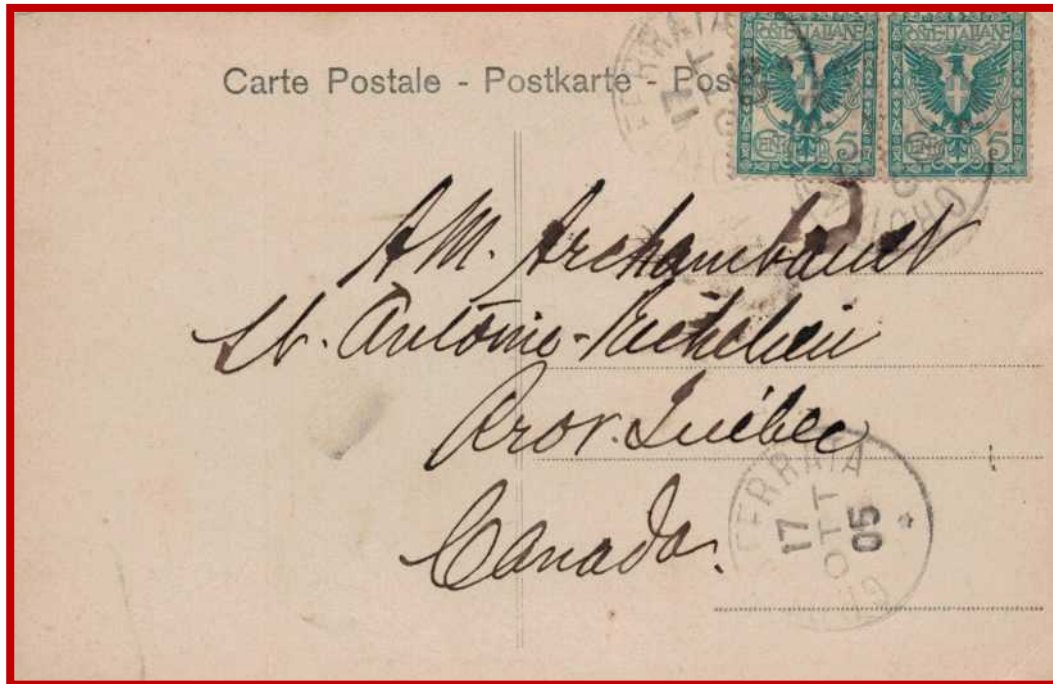 Carte Postale - Postkarte - Post
POSTE·ITALIANE POSTE·ITALIANE
CENT 5 CENT 5
A M. Archambault
St. Antoine-Richelieu
Prov. Québec
Canada.
GROTTAFERRATA
17
OTT
05